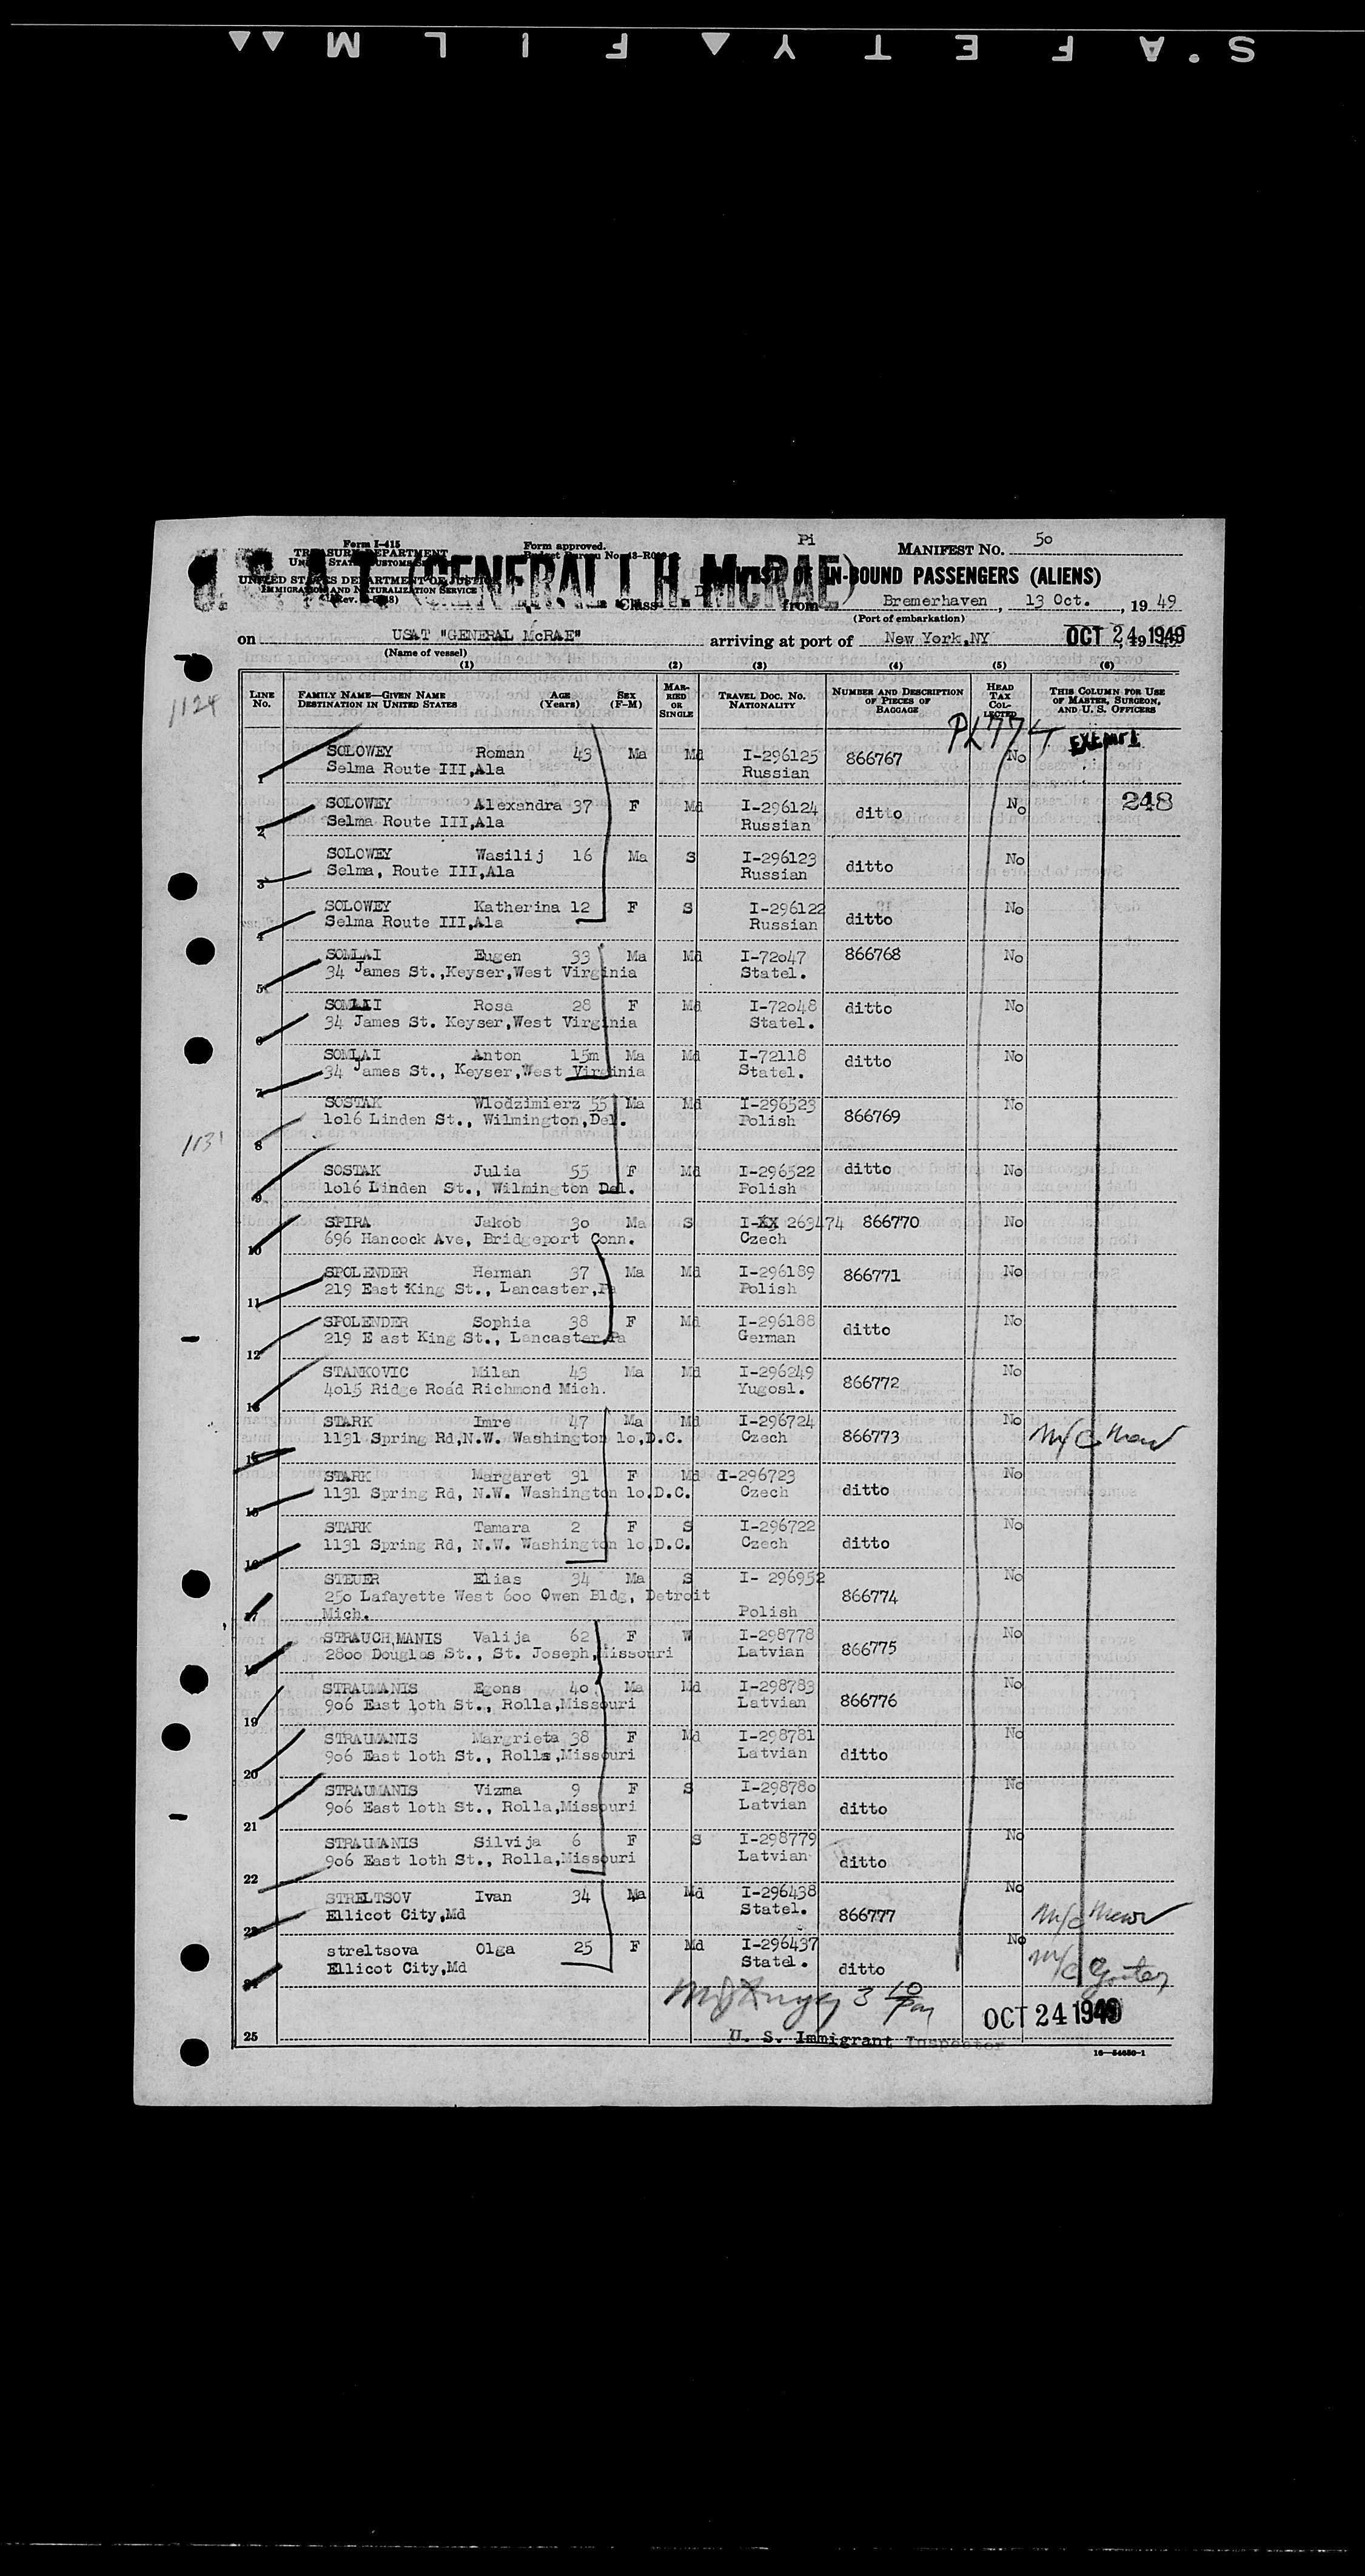 S.AFETY FILM
Form I-415
TREASURY DEPARTMENT
UNITED STATES CUSTOMS
UNITED STATES DEPARTMENT OF JUSTICE
IMMIGRATION AND NATURALIZATION SERVICE
Form approved.
Budget Bureau No.
Pi
MANIFEST No. 50
U.S.A.T. (GENERAL J. H. McRAE)
LIST OF IN-BOUND PASSENGERS (ALIENS)
Class from Bremerhaven, 13 Oct., 1949
(Port of embarkation)
on USAT "GENERAL McRAE" arriving at port of New York,NY OCT 24 1949
(Name of vessel)
(1) (2) (3) (4) (5) (6)
LINE No. FAMILY NAME—GIVEN NAME DESTINATION IN UNITED STATES AGE (Years) SEX (F-M) MARRIED OR SINGLE TRAVEL DOC. NO. NATIONALITY NUMBER AND DESCRIPTION OF PIECES OF BAGGAGE HEAD TAX COLLECTED THIS COLUMN FOR USE OF MASTER, SURGEON, AND U. S. OFFICERS
1124
PL 774 Exempt
1 SOLOWEY Roman 43 Ma Md I-296125 866767 No
Selma Route III,Ala Russian
2 SOLOWEY Alexandra 37 F Md I-296124 ditto No 248
Selma Route III,Ala Russian
3 SOLOWEY Wasilij 16 Ma S I-296123 ditto No
Selma, Route III,Ala Russian
4 SOLOWEY Katherina 12 F S I-296122 ditto No
Selma Route III,Ala Russian
5 SOMLAI Eugen 33 Ma Md I-72o47 866768 No
34 James St.,Keyser,West Virginia Statel.
6 SOMLAI Rosa 28 F Md I-72o48 ditto No
34 James St. Keyser,West Virginia Statel.
7 SOMLAI Anton 15m Ma Md I-72118 ditto No
34 James St., Keyser,West Virginia Statel.
1131
8 SOSTAK Wlodzimierz 55 Ma Md I-296523 866769 No
1o16 Linden St., Wilmington,Del. Polish
9 SOSTAK Julia 55 F Md I-296522 ditto No
1o16 Linden St., Wilmington Del. Polish
10 SPIRA Jakob 3o Ma S I-XX 263474 866770 No
696 Hancock Ave, Bridgeport Conn. Czech
11 SPOLENDER Herman 37 Ma Md I-296189 866771 No
219 East King St., Lancaster,Pa Polish
12 SPOLENDER Sophia 38 F Md I-296188 ditto No
219 E ast King St., Lancaster,Pa German
13 STANKOVIC Milan 43 Ma Md I-296249 866772 No
4o15 Ridge Road Richmond Mich. Yugosl.
14 STARK Imre 47 Ma Md I-296724 866773 No
1131 Spring Rd,N.W. Washington lo,D.C. Czech
15 STARK Margaret 31 F Md I-296723 ditto No
1131 Spring Rd, N.W. Washington lo.D.C. Czech
16 STARK Tamara 2 F S I-296722 ditto No
1131 Spring Rd, N.W. Washington lo,D.C. Czech
17 STEUER Elias 34 Ma S I- 296952 866774 No
25o Lafayette West 6oo Owen Bldg, Detroit
Mich. Polish
18 STRAUCH,MANIS Valija 62 F W I-298778 866775 No
28oo Douglas St., St. Joseph,Missouri Latvian
19 STRAUMANIS Egons 4o Ma Md I-298783 866776 No
9o6 East loth St., Rolla,Missouri Latvian
20 STRAUMANIS Margrieta 38 F Md I-298781 ditto No
9o6 East loth St., Rolla,Missouri Latvian
21 STRAUMANIS Vizma 9 F S I-29878o ditto No
9o6 East loth St., Rolla,Missouri Latvian
22 STRAUMANIS Silvija 6 F S I-298779 ditto No
9o6 East loth St., Rolla,Missouri Latvian
23 STRELTSOV Ivan 34 Ma Md I-296438 866777 No
Ellicot City,Md Statel.
24 streltsova Olga 25 F Md I-296437 ditto No
Ellicot City,Md Statel.
3 10 pm
OCT 24 1949
25 U. S. Immigrant Inspector